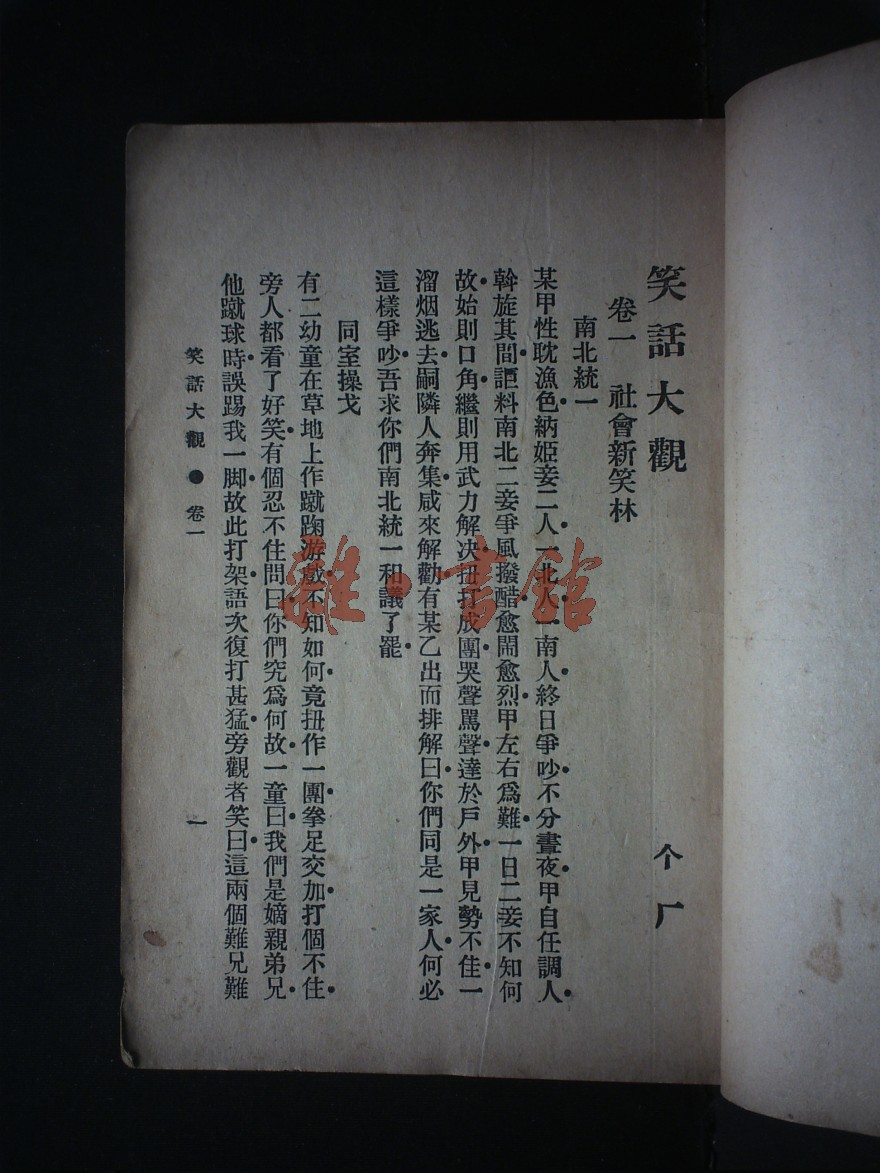 笑話大觀
个厂
卷一　社會新笑林
南北統一
某甲性耽漁色納姬妾二人一北人一南人終日爭吵不分晝夜甲自任調人
斡旋其間詎料南北二妾爭風撥醋愈鬧愈烈甲左右爲難一日二妾不知何
故始則口角繼則用武力解决扭打成團哭聲罵聲達於戶外甲見勢不佳一
溜烟逃去嗣隣人奔集咸來解勸有某乙出而排解曰你們同是一家人何必
這樣爭吵吾求你們南北統一和議了罷
同室操戈
有二幼童在草地上作蹴踘游戲不知如何竟扭作一團拳足交加打個不住
旁人都看了好笑有個忍不住問曰你們究爲何故一童曰我們是嫡親弟兄
他蹴球時誤踢我一脚故此打架語次復打甚猛旁觀者笑曰這兩個難兄難
笑話大觀●卷一
一
雜·書館